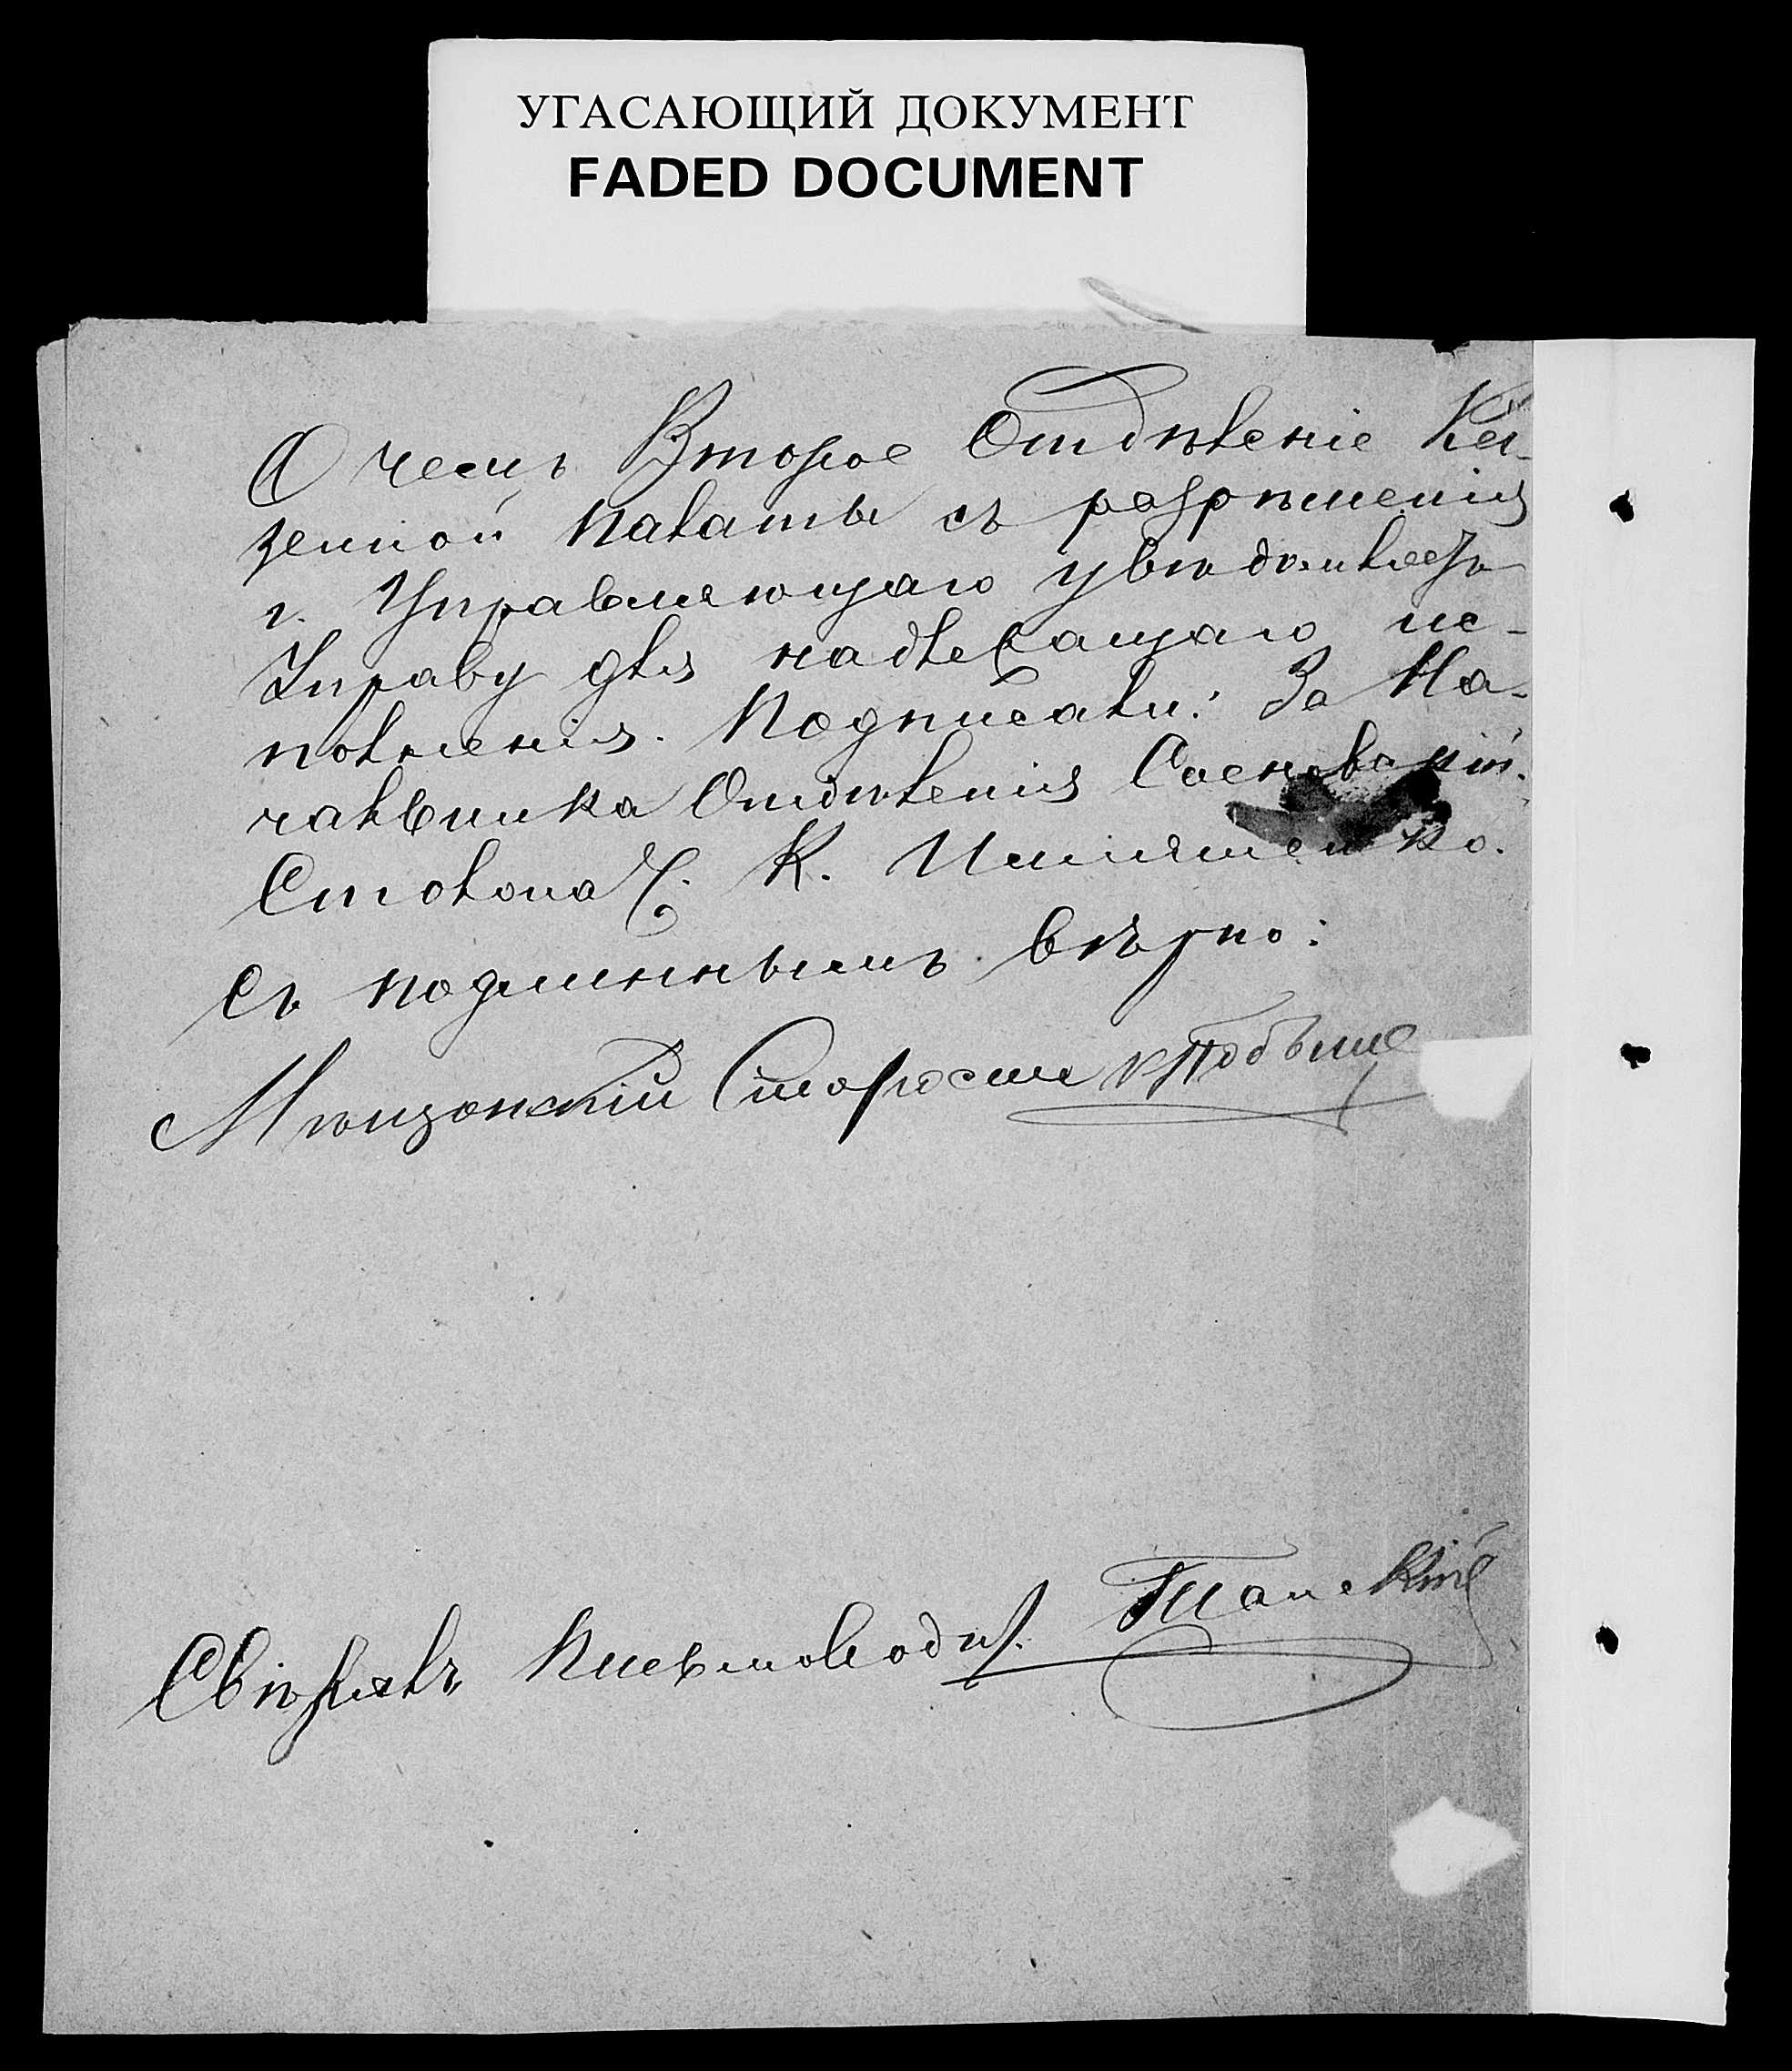 УГАСАЮЩИЙ ДОКУМЕНТ
FADED DOCUMENT
О чемъ Второе Отдѣленіе Ка-
зенной Палаты съ разрѣшенія
г. Управляющаго увѣдомляетъ
Управу для надлежащаго ис-
полненія. Подписали: За На-
чальника Отдѣленія Сосновскій.
Столона Ч. К.
Съ подлиннымъ вѣрно:
Мѣщанскій Староста
Свѣрялъ Письмоводит.